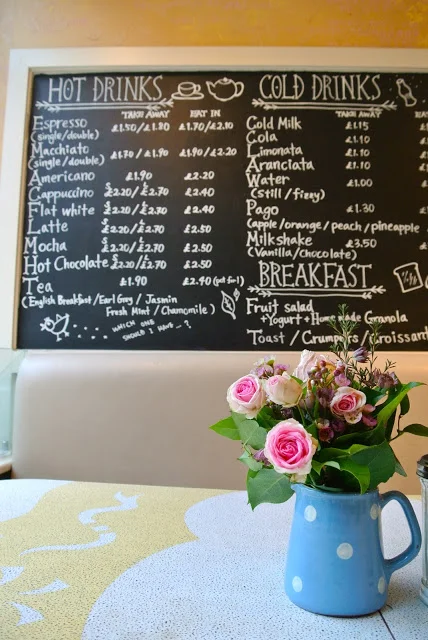 HOT DRINKS
TAKE AWAY EAT IN
Espresso £1.50/£1.80 £1.70/£2.10
(single/double)
Macchiato £1.70/£1.90 £1.90/£2.20
(single/double)
Americano £1.90 £2.20
Cappuccino S £2.20/L £2.70 £2.40
Flat white S £2.20/L £2.70 £2.40
Latte S £2.20/L £2.70 £2.50
Mocha S £2.20/L £2.70 £2.50
Hot Chocolate S £2.20/L £2.70 £2.50
Tea £1.90 £2.40 (pot for 1)
(English Breakfast/Earl Grey/Jasmin
Fresh Mint/Chamomile)
WHICH ONE
SHOULD I HAVE -- ?
COLD DRINKS
TAKE AWAY
Cold Milk £1.15
Cola £1.10
Limonata £1.10
Aranciata £1.10
Water £1.00
(Still/fizzy)
Pago £1.30
(apple/orange/peach/pineapple
Milkshake £3.50
(Vanilla/Chocolate)
BREAKFAST
Fruit salad
+Yogurt + Homemade Granola
Toast/Crumpets/Croissant